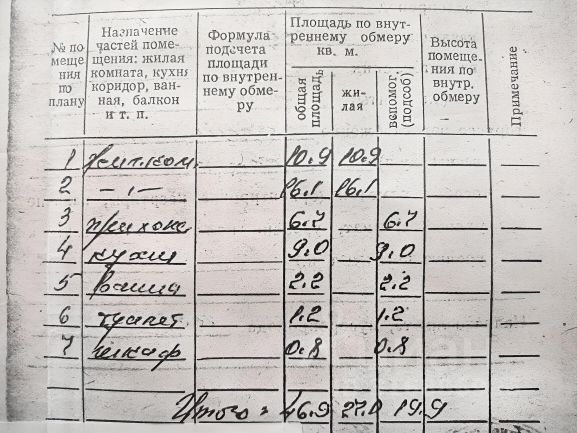 № по помеще ния по плану
Назначение частей поме- щения: жилая комната, кухня коридор, ван- ная, балкон и т. п.
Формула подсчета площади по внутрен- нему обме- ру
Площадь по внут- реннему обмеру кв. м.
общая площадь
жи- лая
вспомог. (подсоб)
Высота помеще- ния по внутр. обмеру
Примечание
1 жил.ком. 10.9 10.9
2 —"— 16.1 16.1
3 прихож 6.7 6.7
4 кухни 9.0 9.0
5 ванна 2.2 2.2
6 туалет 1.2 1.2
7 шкаф 0.8 0.8
Итого: 46.9 27.0 19.9